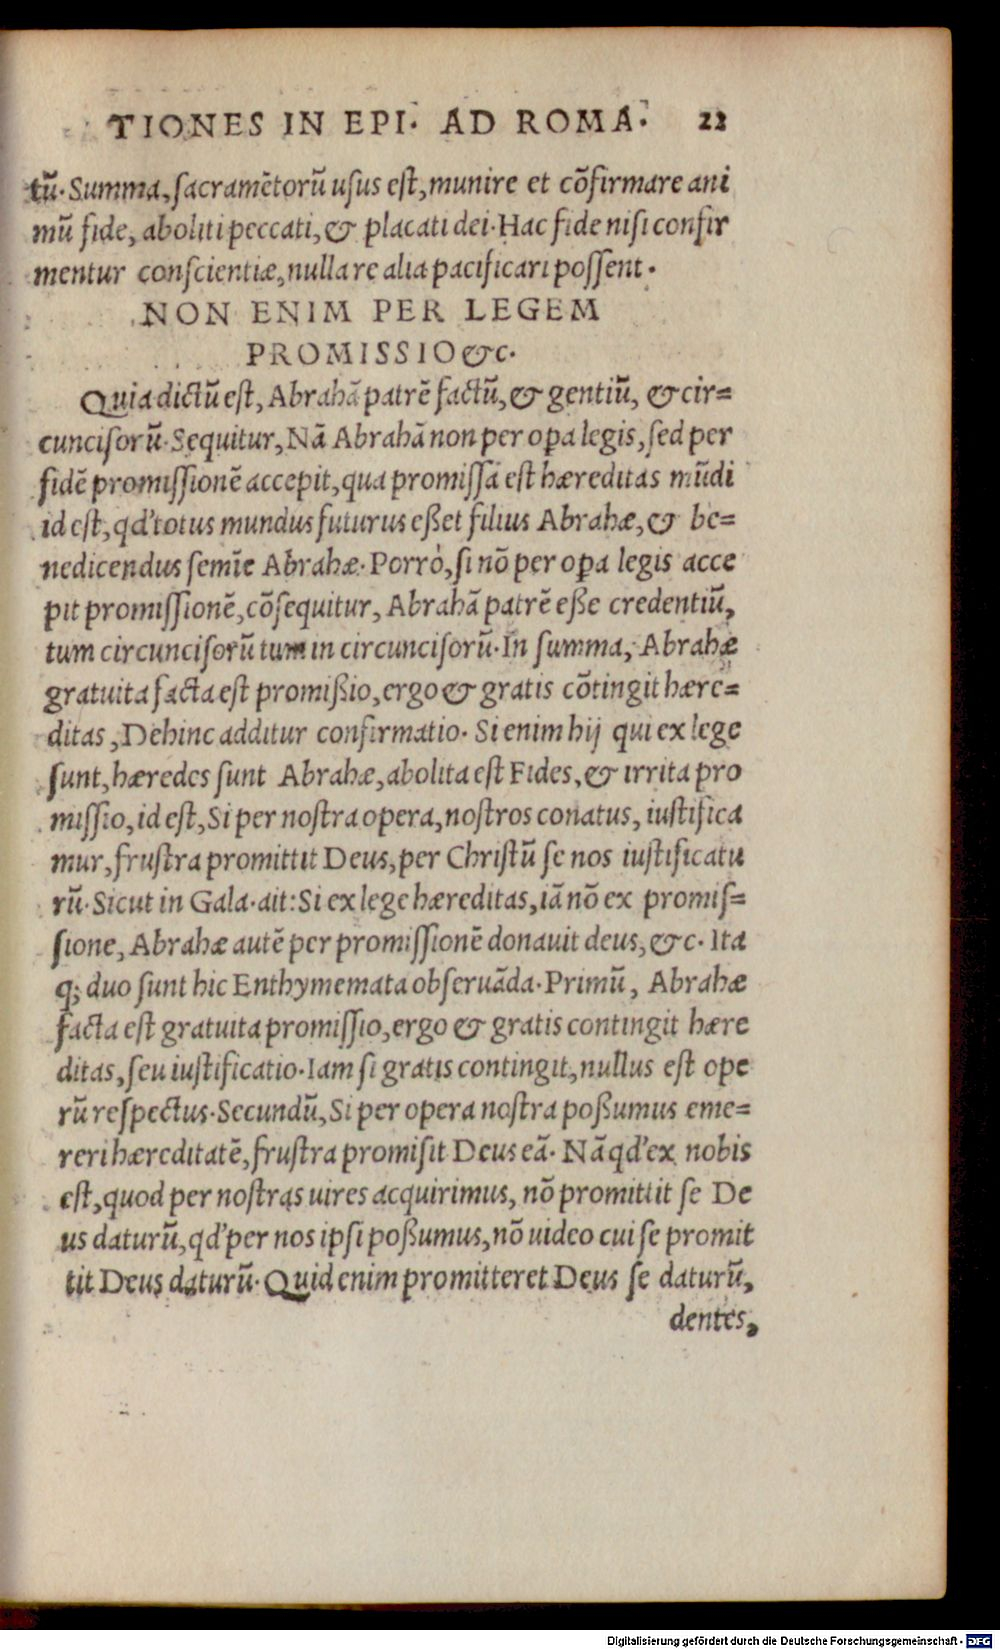 TIONES IN EPI. AD ROMA. 22
tū. Summa, ſacramētorū uſus eſt, munire et cōfirmare ani
mū fide, aboliti peccati, & placati dei. Hac fide niſi confir
mentur conſcientiæ, nulla re alia pacificari poſſent.
NON ENIM PER LEGEM
PROMISSIO &c.
Quia dictū eſt, Abrahā patrē factū, & gentiū, & cir=
cunciſorū. Sequitur, Nā Abrahā non per opa legis, ſed per
fidē promiſſionē accepit, qua promiſſa eſt hæreditas mūdi
id eſt, qd' totus mundus futurus eßet filius Abrahæ, & be=
nedicendus ſemīe Abrahæ. Porrò, ſi nō per opa legis acce
pit promiſſionē, cōſequitur, Abrahā patrē eße credentiū,
tum circunciſorū tum in circunciſorū. In ſumma, Abrahæ
gratuita facta eſt promißio, ergo & gratis cōtingit hære=
ditas, Dehinc additur confirmatio. Si enim hij qui ex lege
ſunt, hæredes ſunt Abrahæ, abolita eſt Fides, & irrita pro
miſſio, id eſt, Si per noſtra opera, noſtros conatus, iuſtifica
mur, fruſtra promittit Deus, per Chriſtū ſe nos iuſtificatu
rū. Sicut in Gala. ait: Si ex lege hæreditas, iā nō ex promiſ=
ſione, Abrahæ autē per promiſſionē donauit deus, &c. Ita
q; duo ſunt hic Enthymemata obſeruāda. Primū, Abrahæ
facta eſt gratuita promiſſio, ergo & gratis contingit hære
ditas, ſeu iuſtificatio. Iam ſi gratis contingit, nullus eſt ope
rū reſpectus. Secundū, Si per opera noſtra poßumus eme=
reri hæreditatē, fruſtra promiſit Deus eā. Nā qd' ex nobis
eſt, quod per noſtras uires acquirimus, nō promittit ſe De
us daturū, qd' per nos ipſi poßumus, nō uideo cui ſe promit
tit Deus daturū. Quid enim promitteret Deus ſe daturū,
dentes,
Digitalisierung gefördert durch die Deutsche Forschungsgemeinschaft - DFG